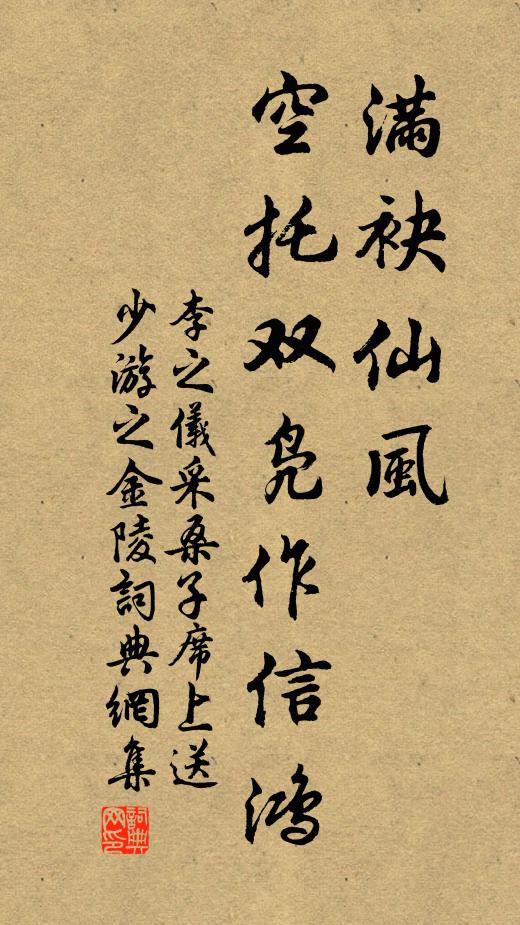 满袂仙風
空托双凫作信鸿
李之儀采桑子席上送
少游之金陵詞典網集
詞典网印